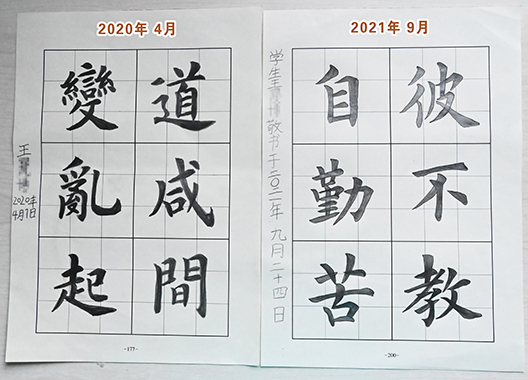 2020年 4月
道咸間
變亂起
王
2020年
4月1日
-179-
2021年 9月
彼不教
自勤苦
学生敬书于二〇二一年 九月二十四日
-200-